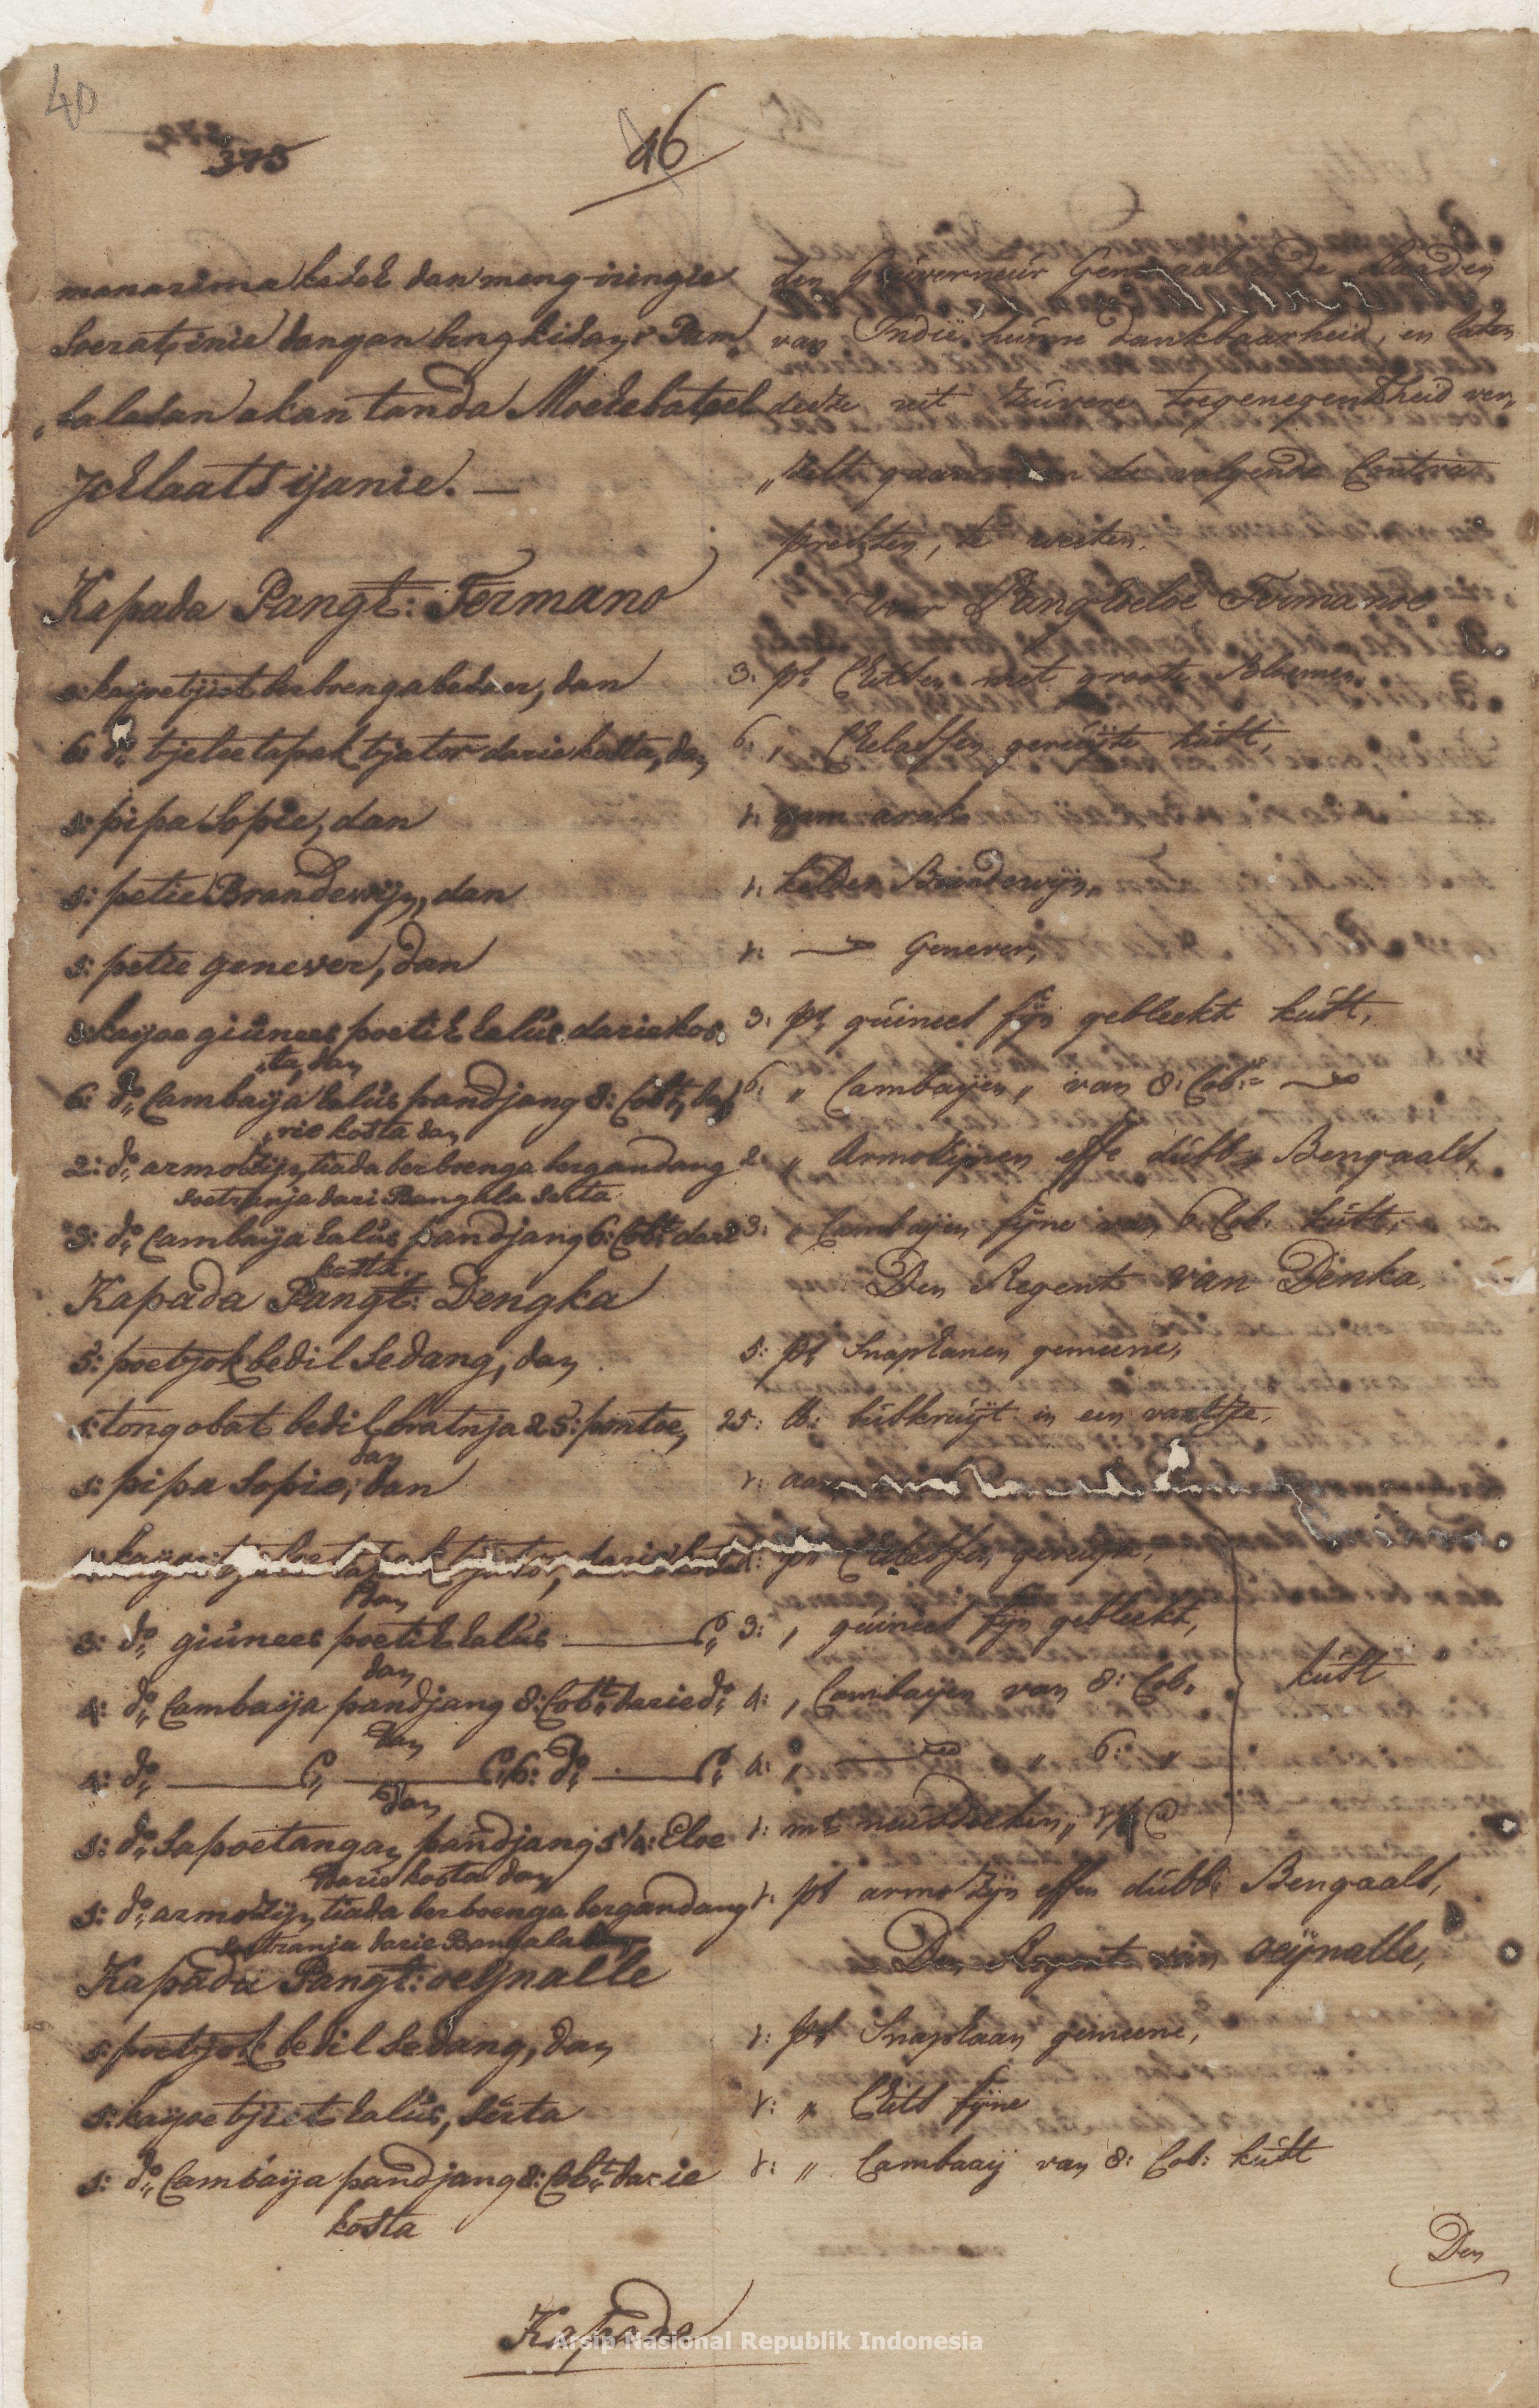 40
375
46
manarima kaseh dan meng-iringie
Soerat, inie dangan bingkisan, Pam„
„balasan akan tanda Moeka batoel
Jchlaats ijanie. —
Kapada Pangt: Termano
3: kaijoe tjiet berboenga besaer, dan
6: do„ tjelee tapak tjator darie kosta, dan
1: pipa Sopie, dan
1: petie Brandewijn, dan
1: petie genever, dan
3: kaijoe giünees poetih halüs darie kos„
„ta, dan
6: do„ Cambaija halüs pandjang 8: Cobt, da„
„rie kosta dan
2: do„ armozijn, tiada berboenga bergandang
soetranja dari Bangala serta
3: do„ Cambaija halüs pandjang 6: Cobt: dari
kosta.
Kapada Pangt: Dengka
5: poetjok bedil Sedang, dan
1: tong obat bedil bratnja 25: pontoe,
dan
1: pipa Sopie, dan
kaijoe tjelee tapak tjator, darie kosta
dan
3: do„ giünees poetih halüs ——— Co„
dan
4: do„ Cambaija pandjang 8: Cobt: darie do„
dan
4: do„ ——— Co„ ——— Co„ 6: do„ ——— Co„
dan
1: do„ Sapoetangan pandjang 5¼: Eloe
darie kosta dan
1: do„ armozijn, tiada berboenga bergandang
soetranja darie Bangala
Kapada Pangt: oeijnalle
1: poetjok bedil Sedang, dan
1: kaijoe tjiet halüs, serta
1: do„ Cambaija pandjang 8: Cobt: darie
kosta
Kapada
den Gouverneür Generaal en de Raaden
van Indië hünne dankbaarheid, en laten
dezze uit züvere toegenegentheid ver„
„zelt gaan van de volgende Contra
presten, te weten.
Voor Pangloeloe Termanoe
3: ps Chitsen met groote Bloemen,
6: „ Chelassen gerüijte küst,
1: gam arak
1: kelder Brandewijn,
1: — Genever,
3: ps güinees fijn gebleekt küst,
6: „ Cambaijen„ van 8: Cob: —
2: „ Armozijnen effe dübb: Bengaals,
3: „ Cambaijen fijne van 6 Cob: küst,
Den Regent van Denka.
5: ps Snaphanen gemeene,
25: lb: büskrüijt in een vaatje,
1: aam
ps Chelassen gerüijte,
3: „ güinees fijn gebleekt,
4: „ Cambaijen van 8: Cob„
küst
4: „ — „ 6: „
1: ms neüsdoeken,
1: ps armozijn effen dübb: Bengaals,
Den Regent van oeijnalle,
1: ps Snaphaan gemeene,
1: „ Chits fijne
1: „ Cambaaij van 8: Cob: küst
Den
Arsip Nasional Republik Indonesia